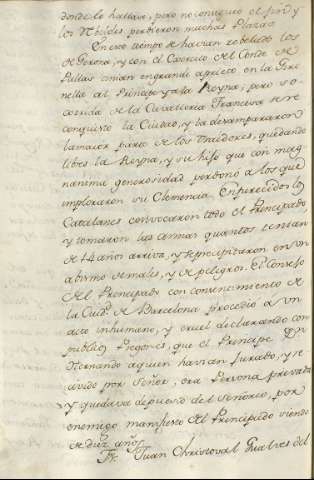 donde lo hallase, pero no consiguio el fin y
los Rebeldes perdieron muchas Plazas
En este tiempo se havian rebelado los
de Gerona, y con el Exercito del Conde de
Pallas tenian en grande aprieto en la Gir
nella al Principe y a la Reyna; pero so
corrida de la Cavalleria Francesa se re
conquisto la Ciudad, y la desampararon
la maior parte de los traidores, quedando
libres la Reyna, y su hijo que con mag
nanima generosidad perdonó a los que
imploraron su Clemencia. Enfurecidos los
Catalanes convocaron todo el Principado,
y tomaron las armas quantos tenian
de 14 años arriva, y se precipitaron en un
abismo de males, y de peligros. El Consejo
del Principado con consentimiento de
la Ciud. de Barcelona procedió a un
acto inhumano, y cruel declarando con
publicos Pregones, que el Principe Dn
Hernando a quien havian Jurado, y re
civido por Señor, era Persona privada
y quedava depuesto del Señorio, por
enemigo manifiesto del Principado siendo
de diez años.
Fr. Juan Christoval Gualbes del